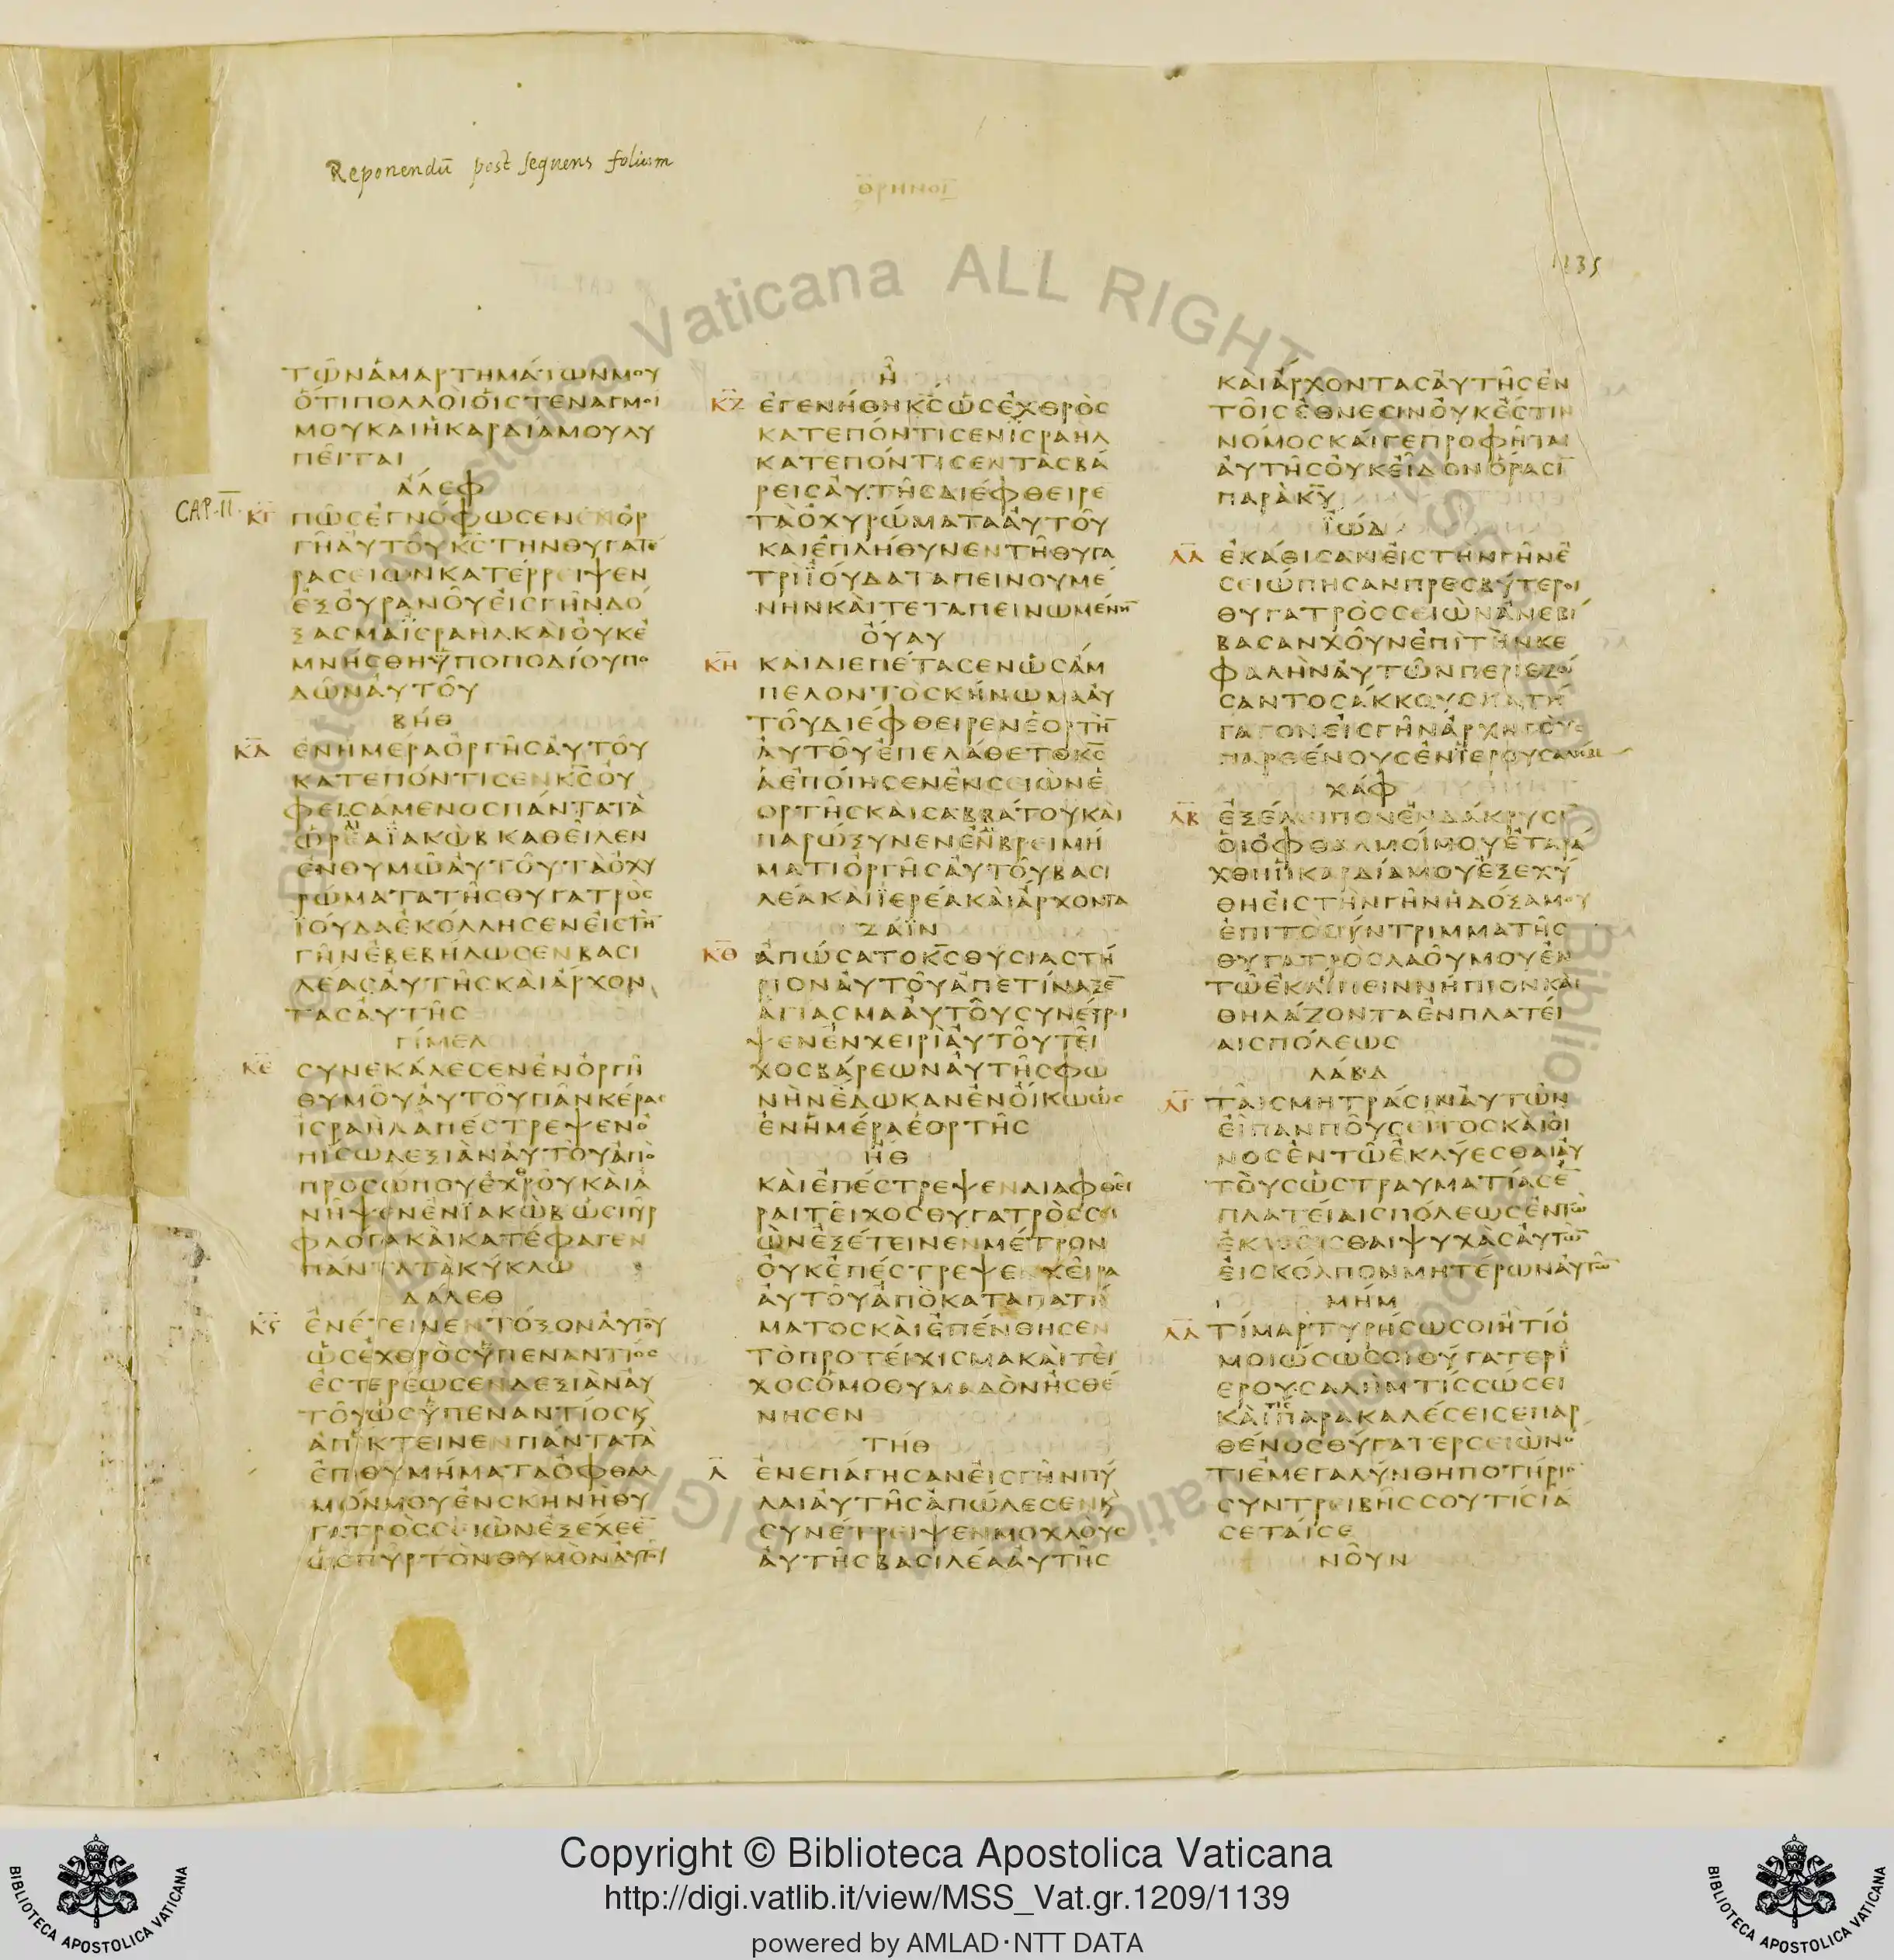 Reponendū post sequens folium
1235
ΤΩΝΑΜΑΡΤΗΜΑΤΩΝΜΟΥ
ΟΤΙΠΟΛΛΟΙΟΙΣΤΕΝΑΓΜΟΙ
ΜΟΥΚΑΙΗΚΑΡΔΙΑΜΟΥΛΥ
ΠΕΙΤΑΙ
ΑΛΕΦ
CAP. II. ΚΓ ΠΩΣΕΓΝΟΦΩΣΕΝΕΝΟΡ
ΓΗΑΥΤΟΥΚΣΤΗΝΘΥΓΑΤΕ
ΡΑΣΕΙΩΝΚΑΤΕΡΡΕΙΨΕΝ
ΕΞΟΥΡΑΝΟΥΕΙΣΓΗΝΔΟ
ΞΑΣΜΑΙΣΡΑΗΛΚΑΙΟΥΚΕ
ΜΝΗΣΘΗΥΠΟΠΟΔΙΟΥΠΟ
ΔΩΝΑΥΤΟΥ
ΒΗΘ
ΚΔ ΕΝΗΜΕΡΑΟΡΓΗΣΑΥΤΟΥ
ΚΑΤΕΠΟΝΤΙΣΕΝΚΣΟΥ
ΦΕΙΣΑΜΕΝΟΣΠΑΝΤΑΤΑ
ΩΡΑΙΑΙΑΚΩΒΚΑΘΕΙΛΕΝ
ΕΝΘΥΜΩΑΥΤΟΥΤΑΟΧΥ
ΡΩΜΑΤΑΤΗΣΘΥΓΑΤΡΟΣ
ΙΟΥΔΑΕΚΟΛΛΗΣΕΝΕΙΣΤΗ
ΓΗΝΕΒΕΒΗΛΩΣΕΝΒΑΣΙ
ΛΕΑΣΑΥΤΗΣΚΑΙΑΡΧΟΝ
ΤΑΣΑΥΤΗΣ
ΓΙΜΕΛ
ΚΕ ΣΥΝΕΚΛΑΣΕΝΕΝΟΡΓΗ
ΘΥΜΟΥΑΥΤΟΥΠΑΝΚΕΡΑΣ
ΙΣΡΑΗΛΑΠΕΣΤΡΕΨΕΝΟ
ΠΙΣΩΔΕΞΙΑΝΑΥΤΟΥΑΠΟ
ΠΡΟΣΩΠΟΥΕΧΘΡΟΥΚΑΙΑ
ΝΗΨΕΝΕΝΙΑΚΩΒΩΣΠΥΡ
ΦΛΟΓΑΚΑΙΚΑΤΕΦΑΓΕΝ
ΠΑΝΤΑΤΑΚΥΚΛΩ
ΔΑΛΕΘ
ΚϚ ΕΝΕΤΕΙΝΕΝΤΟΞΟΝΑΥΤΟΥ
ΩΣΕΧΘΡΟΣΥΠΕΝΑΝΤΙΟΣ
ΕΣΤΕΡΕΩΣΕΝΔΕΞΙΑΝΑΥ
ΤΟΥΩΣΥΠΕΝΑΝΤΙΟΣΚ
ΑΠΕΚΤΕΙΝΕΝΠΑΝΤΑΤΑ
ΕΠΙΘΥΜΗΜΑΤΑΟΦΘΑΛ
ΜΩΝΜΟΥΕΝΣΚΗΝΗΘΥ
ΓΑΤΡΟΣΣΕΙΩΝΕΞΕΧΕΕ
ΩΣΠΥΡΤΟΝΘΥΜΟΝΑΥΤΟΥ
Η
ΚΖ ΕΓΕΝΗΘΗΚΣΩΣΕΧΘΡΟΣ
ΚΑΤΕΠΟΝΤΙΣΕΝΙΣΡΑΗΛ
ΚΑΤΕΠΟΝΤΙΣΕΝΤΑΣΒΑ
ΡΕΙΣΑΥΤΗΣΔΙΕΦΘΕΙΡΕ
ΤΑΟΧΥΡΩΜΑΤΑΑΥΤΟΥ
ΚΑΙΕΠΛΗΘΥΝΕΝΤΗΘΥΓΑ
ΤΡΙΙΟΥΔΑΤΑΠΕΙΝΟΥΜΕ
ΝΗΝΚΑΙΤΕΤΑΠΕΙΝΩΜΕΝΗ
ΟΥΑΥ
ΚΗ ΚΑΙΔΙΕΠΕΤΑΣΕΝΩΣΑΜ
ΠΕΛΟΝΤΟΣΚΗΝΩΜΑΑΥ
ΤΟΥΔΙΕΦΘΕΙΡΕΝΕΟΡΤΗ
ΑΥΤΟΥΕΠΕΛΑΘΕΤΟΚΣ
ΑΕΠΟΙΗΣΕΝΕΝΣΕΙΩΝΕ
ΟΡΤΗΣΚΑΙΣΑΒΒΑΤΟΥΚΑΙ
ΠΑΡΩΞΥΝΕΝΕΝΒΡΕΙΜΗ
ΜΑΤΙΟΡΓΗΣΑΥΤΟΥΒΑΣΙ
ΛΕΑΚΑΙΙΕΡΕΑΚΑΙΑΡΧΟΝΤΑ
ΖΑΙΝ
ΚΘ ΑΠΩΣΑΤΟΚΣΘΥΣΙΑΣΤΗ
ΡΙΟΝΑΥΤΟΥΑΠΕΤΙΝΑΞΕ
ΑΓΙΑΣΜΑΑΥΤΟΥΣΥΝΕΤΡΙ
ΨΕΝΕΝΧΕΙΡΙΑΥΤΟΥΤΕΙ
ΧΟΣΒΑΡΕΩΝΑΥΤΗΣΦΩ
ΝΗΝΕΔΩΚΑΝΕΝΟΙΚΩΩΣ
ΕΝΗΜΕΡΑΕΟΡΤΗΣ
ΗΘ
ΚΑΙΕΠΕΣΤΡΕΨΕΝΔΙΑΦΘΕΙ
ΡΑΙΤΕΙΧΟΣΘΥΓΑΤΡΟΣΣΕΙ
ΩΝΕΞΕΤΕΙΝΕΝΜΕΤΡΟΝ
ΟΥΚΕΠΕΣΤΡΕΨΕΝΧΕΙΡΑ
ΑΥΤΟΥΑΠΟΚΑΤΑΠΑΤΗ
ΜΑΤΟΣΚΑΙΕΠΕΝΘΗΣΕΝ
ΤΟΠΡΟΤΕΙΧΙΣΜΑΚΑΙΤΕΙ
ΧΟΣΟΜΟΘΥΜΑΔΟΝΗΣΘΕ
ΝΗΣΕΝ
ΤΗΘ
Λ ΕΝΕΠΑΓΗΣΑΝΕΙΣΓΗΝΠΥ
ΛΑΙΑΥΤΗΣΑΠΩΛΕΣΕΝΚ
ΣΥΝΕΤΡΕΙΨΕΝΜΟΧΛΟΥΣ
ΑΥΤΗΣΒΑΣΙΛΕΑΑΥΤΗΣ
ΚΑΙΑΡΧΟΝΤΑΣΑΥΤΗΣΕΝ
ΤΟΙΣΕΘΝΕΣΙΝΟΥΚΕΣΤΙΝ
ΝΟΜΟΣΚΑΙΓΕΠΡΟΦΗΤΑΙ
ΑΥΤΗΣΟΥΚΕΙΔΟΝΟΡΑΣΙ
ΠΑΡΑΚΥ
ΙΩΔ
ΛΑ ΕΚΑΘΙΣΑΝΕΙΣΤΗΝΓΗΝΕ
ΣΕΙΩΠΗΣΑΝΠΡΕΣΒΥΤΕΡΟΙ
ΘΥΓΑΤΡΟΣΣΕΙΩΝΑΝΕΒΙ
ΒΑΣΑΝΧΟΥΝΕΠΙΤΗΝΚΕ
ΦΑΛΗΝΑΥΤΩΝΠΕΡΙΕΖΩ
ΣΑΝΤΟΣΑΚΚΟΥΣΚΑΤΗ
ΓΑΓΟΝΕΙΣΓΗΝΑΡΧΗΓΟΥΣ
ΠΑΡΘΕΝΟΥΣΕΝΙΕΡΟΥΣΑΛΗΜ
ΧΑΦ
ΛΒ ΕΞΕΛΕΙΠΟΝΕΝΔΑΚΡΥΣΙ
ΟΙΟΦΘΑΛΜΟΙΜΟΥΕΤΑΡΑ
ΧΘΗΗΚΑΡΔΙΑΜΟΥΕΞΕΧΥ
ΘΗΕΙΣΤΗΝΓΗΝΗΔΟΞΑΜΟΥ
ΕΠΙΤΟΣΥΝΤΡΙΜΜΑΤΗΣ
ΘΥΓΑΤΡΟΣΛΑΟΥΜΟΥΕΝ
ΤΩΕΚΛΙΠΕΙΝΝΗΠΙΟΝΚΑΙ
ΘΗΛΑΖΟΝΤΑΕΝΠΛΑΤΕΙ
ΑΙΣΠΟΛΕΩΣ
ΛΑΒΔ
ΛΓ ΤΑΙΣΜΗΤΡΑΣΙΝΑΥΤΩΝ
ΕΙΠΑΝΠΟΥΣΕΙΤΟΣΚΑΙΟΙ
ΝΟΣΕΝΤΩΕΚΛΥΕΣΘΑΙΑΥ
ΤΟΥΣΩΣΤΡΑΥΜΑΤΙΑΣΕ
ΠΛΑΤΕΙΑΙΣΠΟΛΕΩΣΕΝΤΩ
ΕΚΧΕΙΣΘΑΙΨΥΧΑΣΑΥΤΩ
ΕΙΣΚΟΛΠΟΝΜΗΤΕΡΩΝΑΥΤΩ
ΜΗΜ
ΛΔ ΤΙΜΑΡΤΥΡΗΣΩΣΟΙΗΤΙΟ
ΜΟΙΩΣΩΣΟΙΘΥΓΑΤΕΡΙ
ΕΡΟΥΣΑΛΗΜΤΙΣΣΩΣΕΙ
ΚΑΙΤΙΣΠΑΡΑΚΑΛΕΣΕΙΣΕΠΑΡ
ΘΕΝΟΣΘΥΓΑΤΕΡΣΕΙΩΝΟ
ΤΙΕΜΕΓΑΛΥΝΘΗΠΟΤΗΡΙΟ
ΣΥΝΤΡΕΙΒΗΣΣΟΥΤΙΣΙΑ
ΣΕΤΑΙΣΕ
ΝΟΥΝ
Copyright © Biblioteca Apostolica Vaticana
http://digi.vatlib.it/view/MSS_Vat.gr.1209/1139
powered by AMLAD·NTT DATA
BIBLIOTECA APOSTOLICA VATICANA
BIBLIOTECA APOSTOLICA VATICANA